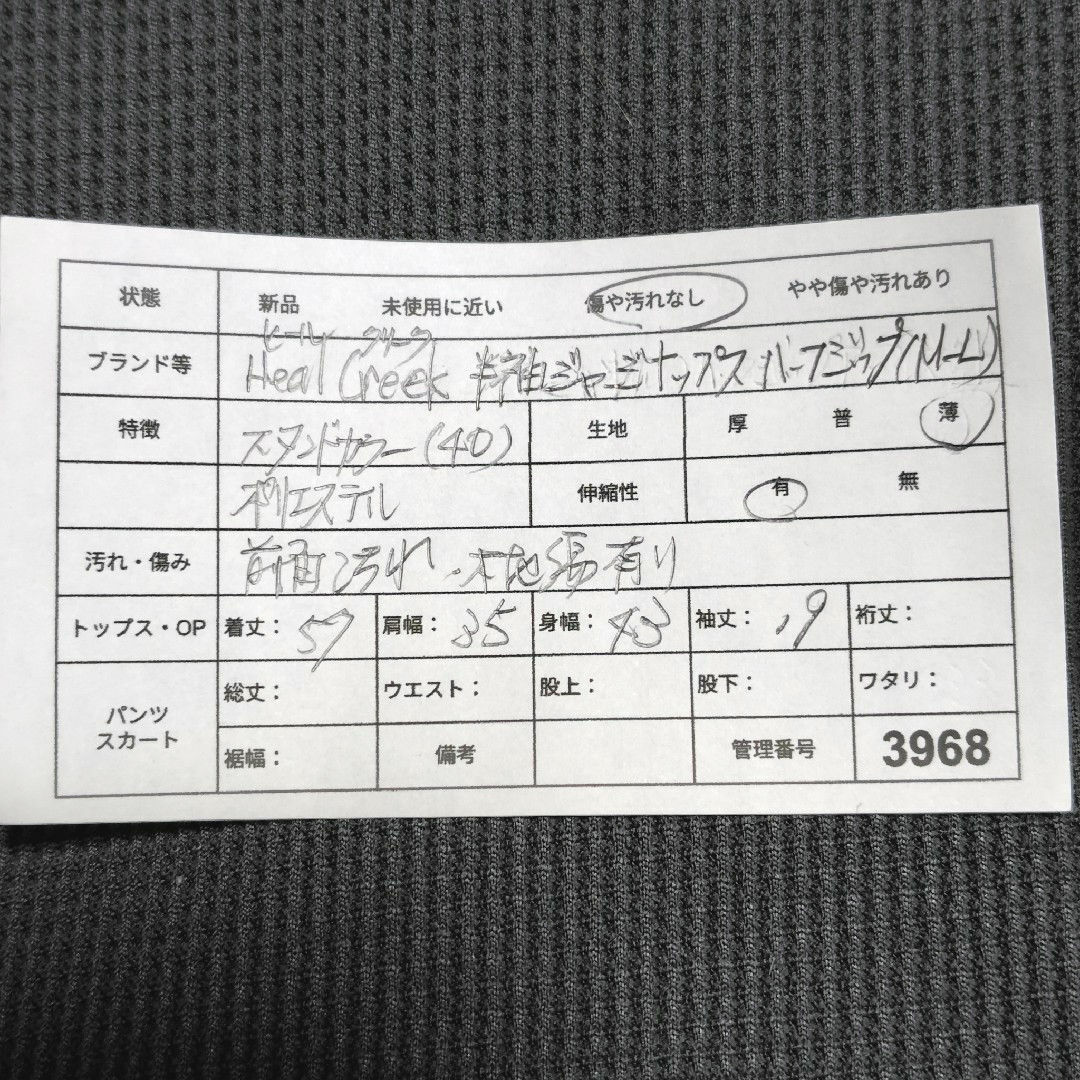 状態 新品 未使用に近い 傷や汚れなし やや傷や汚れあり
ヒール クリーク
ブランド等 Heal Creek 半袖ジャージトップス ハーフジップ(M-L)
特徴 スタンドカラー(40) 生地 厚 普 薄
ポリエステル 伸縮性 有 無
汚れ・傷み 前面汚れ 有り
トップス・OP 着丈: 57 肩幅: 35 身幅: 43 袖丈: 19 裄丈:
パンツ スカート 総丈: ウエスト: 股上: 股下: ワタリ:
裾幅: 備考 管理番号 3968